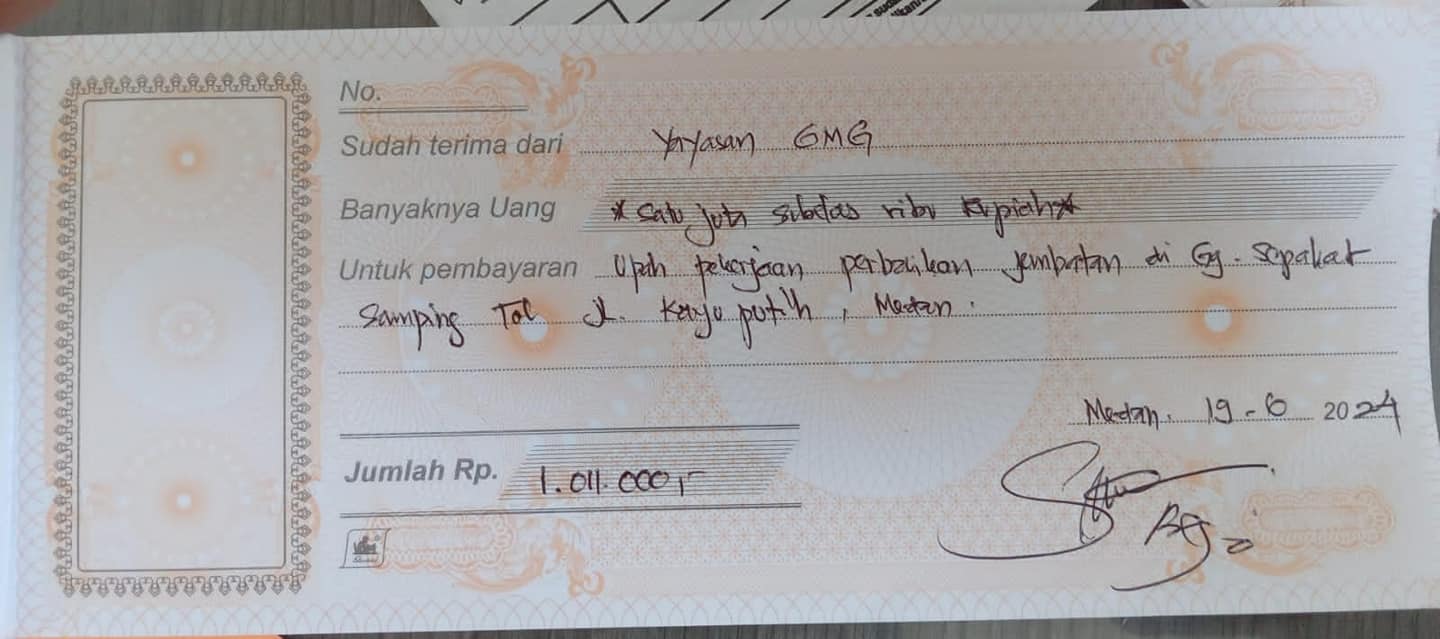 No.
Sudah terima dari Yayasan GMG
Banyaknya Uang * Satu juta sebelas ribu Rupiah *
Untuk pembayaran Upah pekerjaan perbaikan jembatan di Gg. Sepakat
Samping Tol Jl. Kayu putih, Medan.
Medan, 19-6 2024
Jumlah Rp. 1.011.000,-